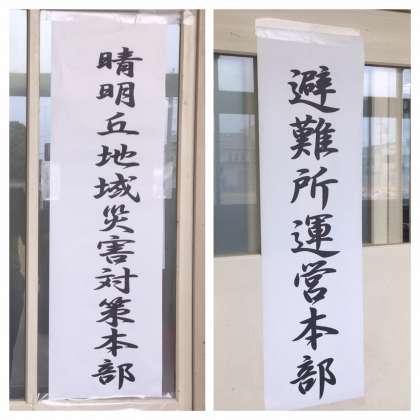 晴明丘地域災害対策本部
避難所運営本部